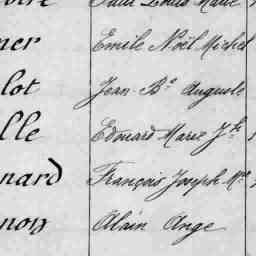 Paul Louis Marie
ner Emile Noël Michel
lot Jean Bte Auguste
lle Edouard Marie Jh
nard François Joseph Mie
non Alain Ange